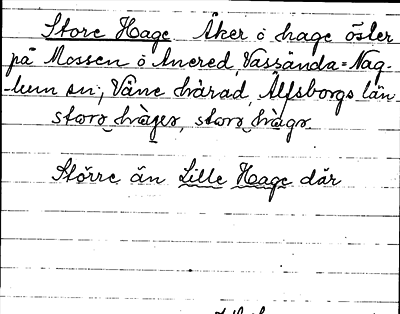 Store Hage Åker o hage öster
på Mossen o Ancred, Vassända=Nag-
-lum sn; Väne härad, Älfsborgs län
storo hàger, storo hàgo
Större än Lille Hage där